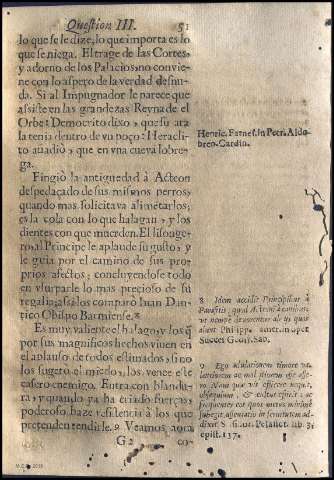 Question III. 51
lo que se le dize, lo que importa es lo
que se niega. El trage de las Cortes,
y adorno de los Palacios, no convie-
ne con lo aspero de la verdad desnu-
da. Si al Impugnador le parece que
assiste en las grandezas Reyna de el
Orbe: Democrito dixo, que su ara
la tenia dentro de vn poço: Heracli-
to añadiò, que en vna cueva lobre-
ga.
Fingiò la antiguedad à Acteon
despedaçado de sus mismos perros,
quando mas solicitava alimētarlos;
es la cola con lo que halagan, y los
dientes con que muerden. El lisonge-
ro, al Principe le aplaude su gusto, y
le guia por el camino de sus pro-
prios afectos; concluyendose todo
en vsurparle lo mas precioso de su
regalia; assi los comparò Iuan Dan-
tico Obispo Barmiense. 8
Es muy valiente el halago, y los q̃
por sus magnificos hechos viven en
el aplauso de todos estimados, si no
los sugetò el miedo, los vence este
casero enemigo. Entra con blandu-
ra, y quando ya ha criado fuerças,
poderoso haze resistencia à los que
pretenden rendirle. 9 Veamos aora
G 2 co-
Henric. Farnes. in Petr. Aldo-
bren. Cardin.
8 Idem accidit Principibus à
Parasitis, quod
Philipp.
Succes
9 Ego adulationem timore
S. Petr.
epist. 137.